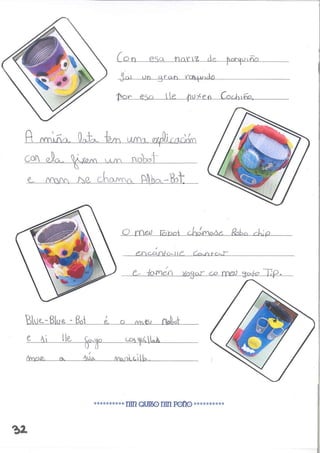 Con esa nariz de porquiño
das un gran roñqundo
Por eso lle puxen Cochiño.
A miña lata ten unha explicación
con ela fixen un robot
e non se chama Alba-Bot.
O meu Robot chámase Robo chip
encántalle cantar
e tamén xogar co meu gato Tip.
Blue-Blue-Bot é o meu robot
e si lle fago cosquillas
move a súa
*********** NIN QUIXO NIN POÑO ***********
32